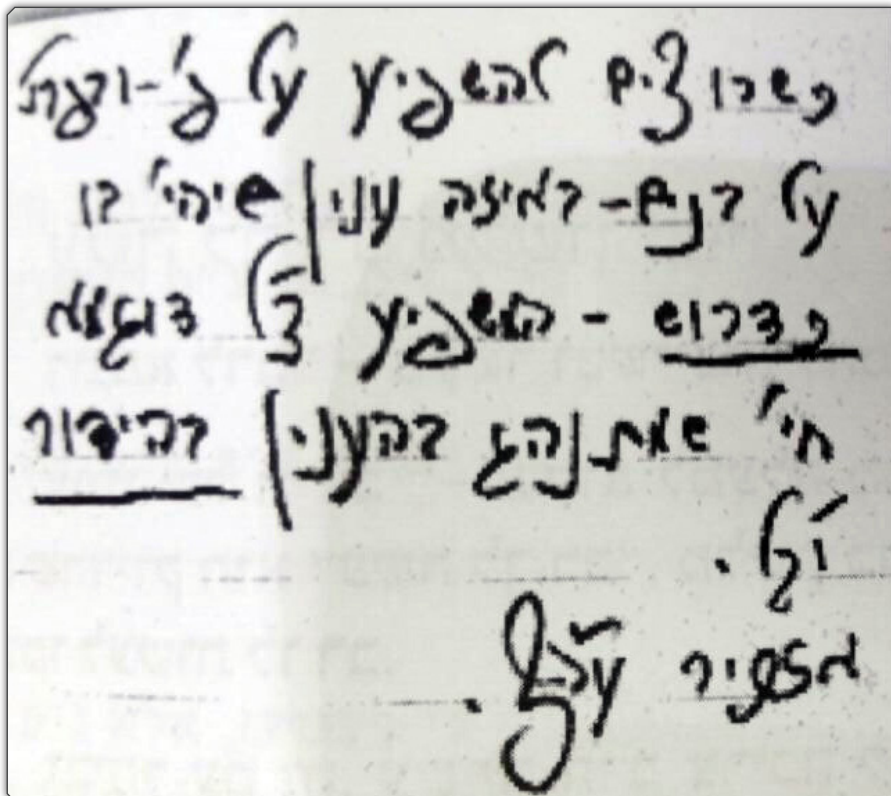 כשרוצים להשפיע על פ'-ובפרט
על רבים - באיזה ענין שיהי' בו
כדרוש - המשפיע צ"ל דוגמא
חי' שמתנהג בהענין בהידור
וק"ל.
אזכיר עה"צ.